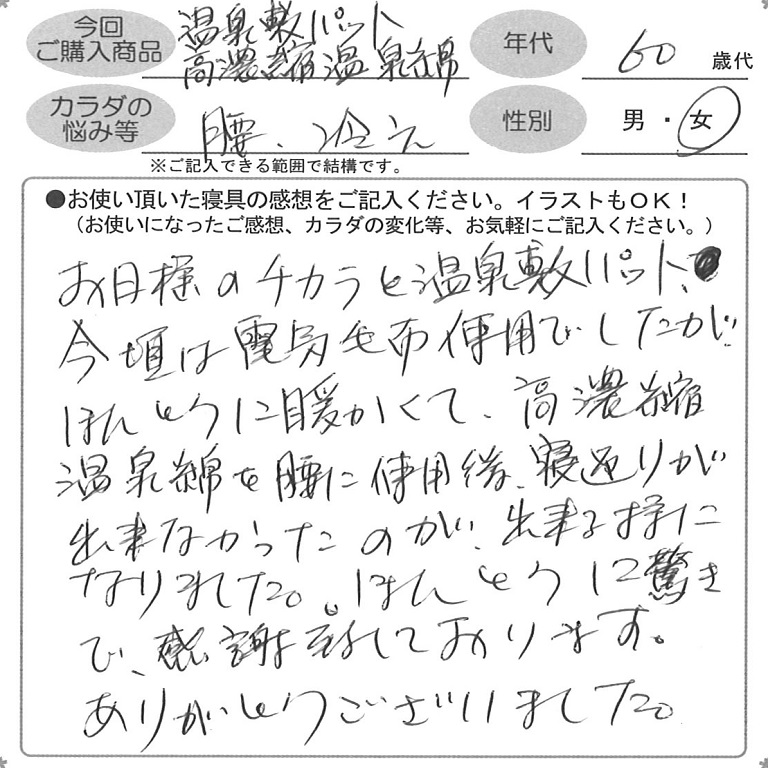 今回
ご購入商品
温泉敷パット
高濃縮温泉綿
年代
60 歳代
カラダの
悩み等
腰、冷え
性別
男・女
※ご記入できる範囲で結構です。
●お使い頂いた寝具の感想をご記入ください。イラストもOK！
（お使いになったご感想、カラダの変化等、お気軽にご記入ください。）
お日様のチカラと温泉敷パット、
今頃は電気毛布使用でしたが
ほんとうに暖かくて、高濃縮
温泉綿を腰に使用後、寝返りが
出来なかったのが、出来る様に
なりました。ほんとうに驚き
で、感謝致しております。
ありがとうございました。